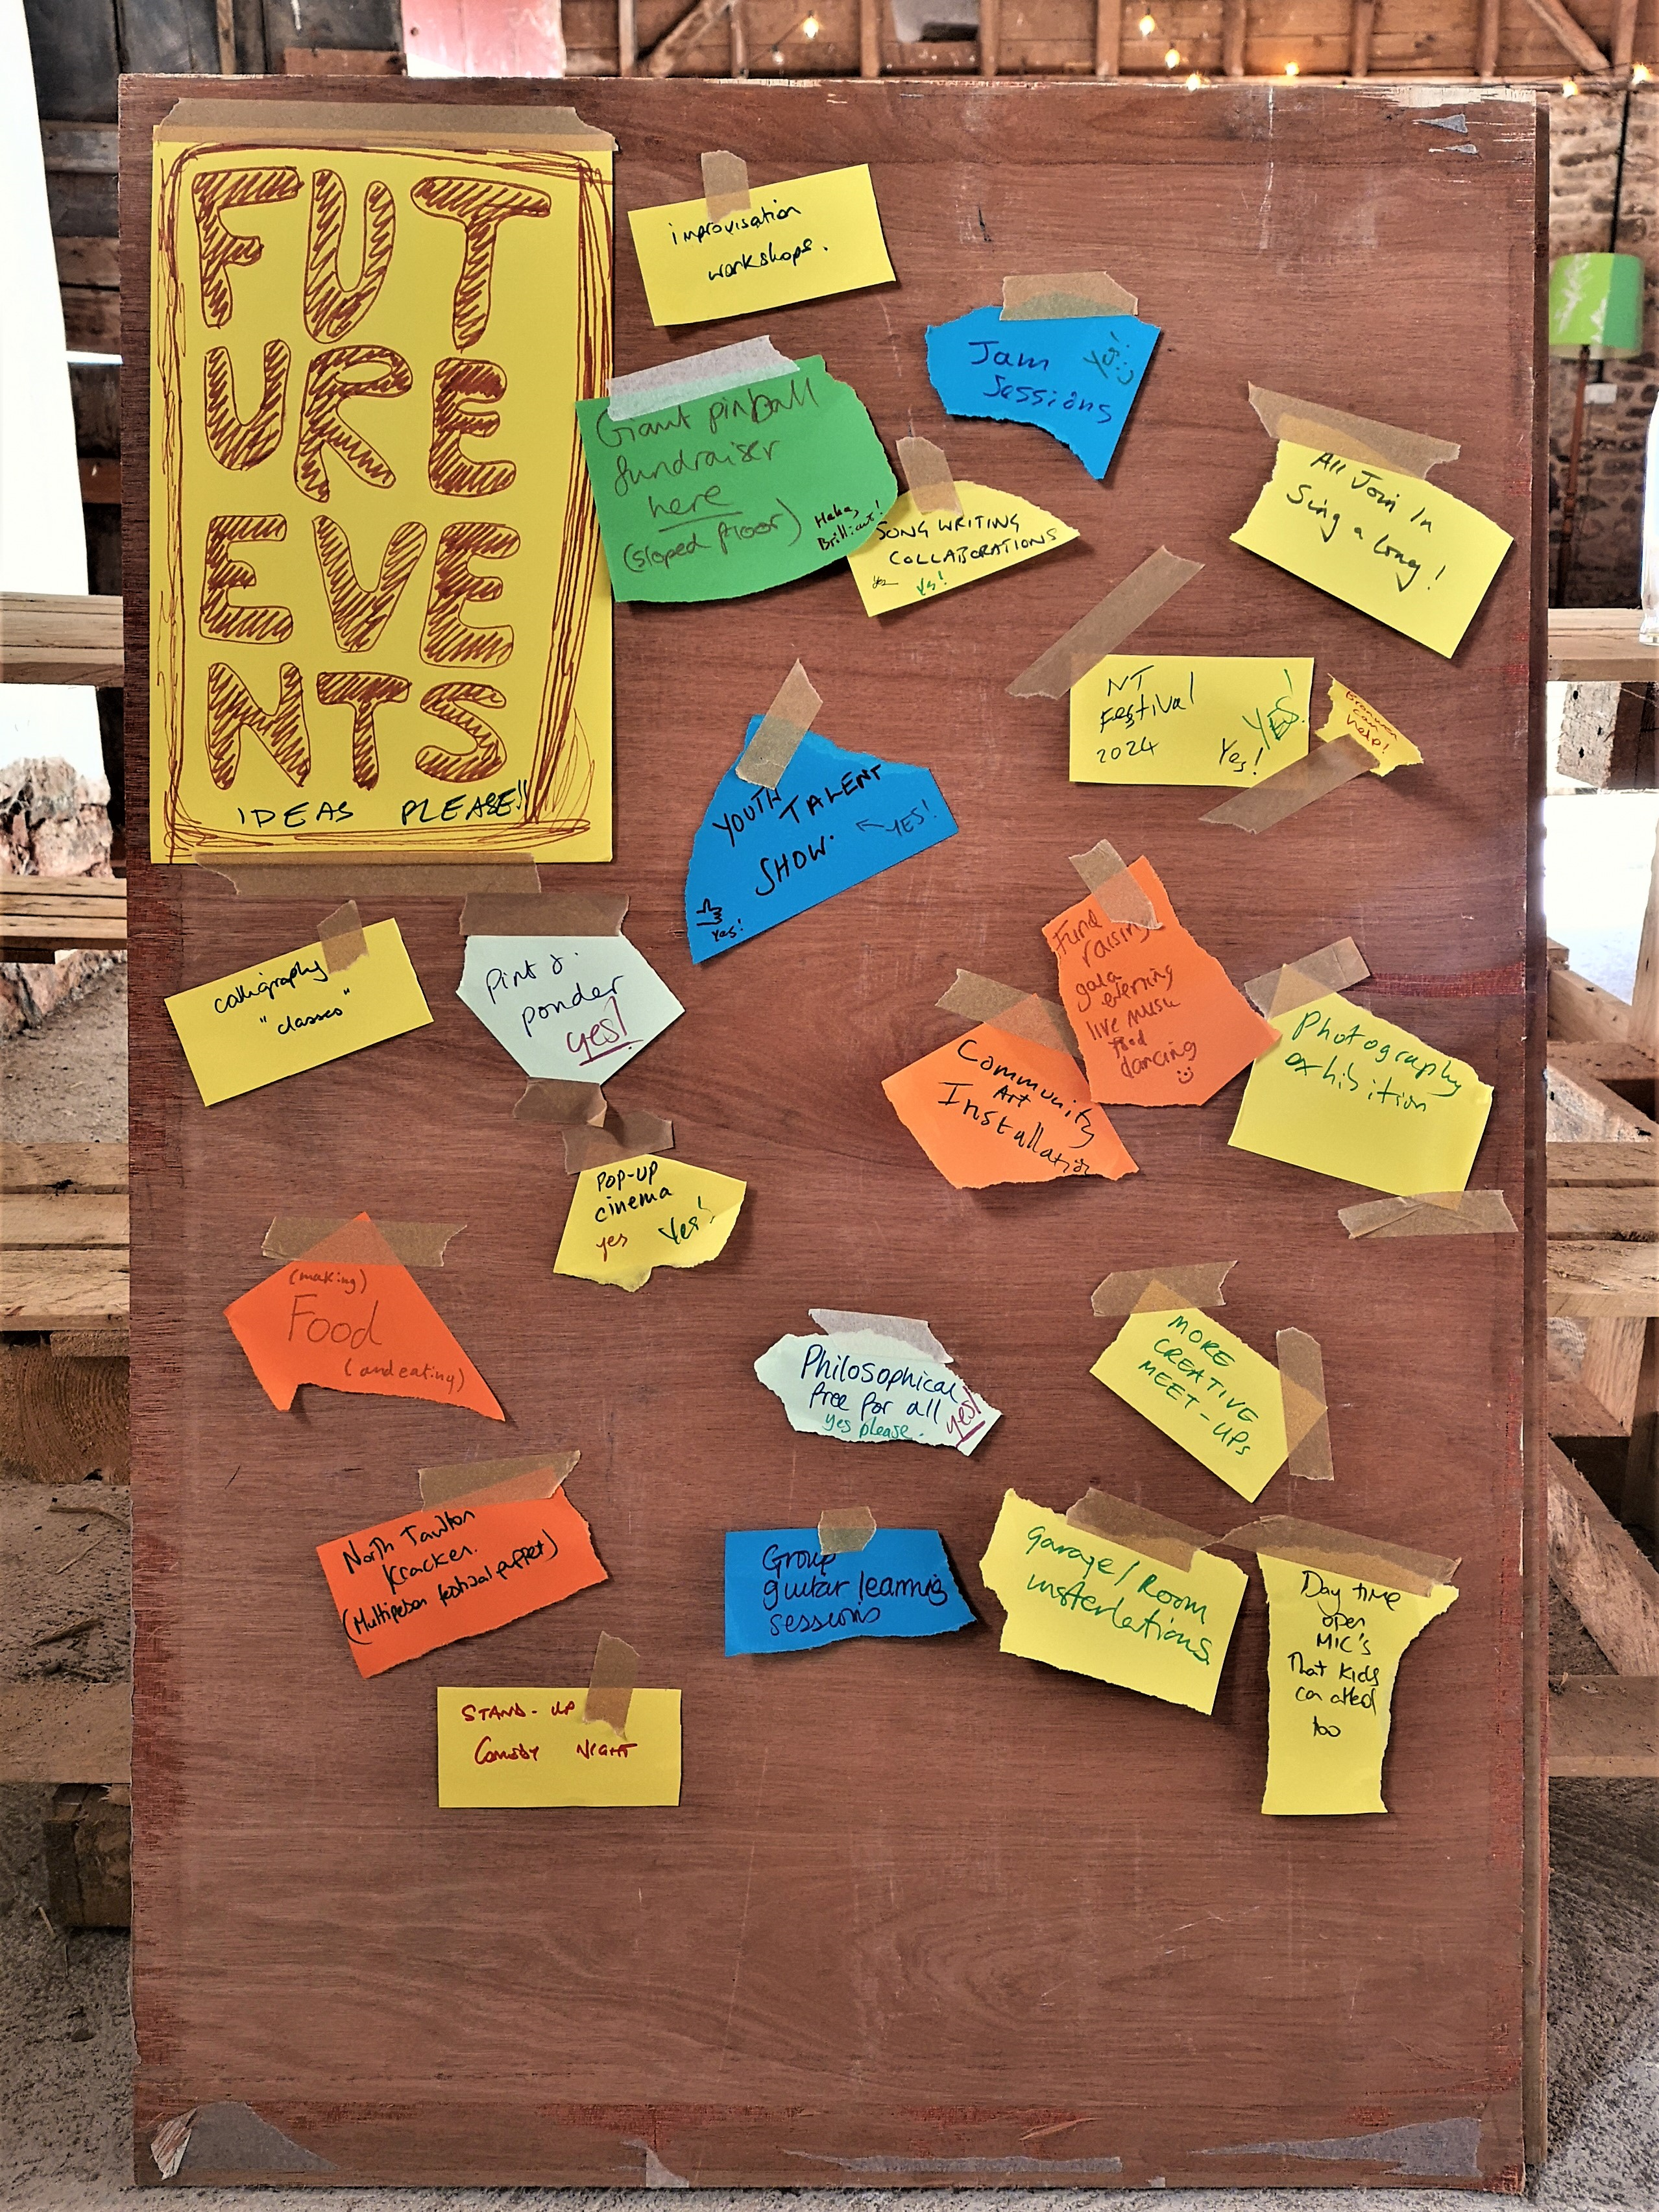 FUT
URE
EVE
NTS
IDEAS PLEASE!!
improvisation
workshops.
Jam
Sessions
Yes!
Giant pinball
fundraiser
here
(sloped floor)
Haha,
Brilliant!
SONG WRITING
COLLABORATIONS
Yes
Yes!
All Join In
Sing a long!
NT
Festival
2024
Yes!
YES!
can
help!
YOUTH
TALENT
SHOW.
←YES!
Yes!
calligraphy
"classes"
Pint &
ponder
yes!
Fund
raising
gala
evening
live music
food
dancing
Community
Art
Installation
Photography
exhibition
POP-UP
cinema
yes
Yes!
(making)
Food
(and eating)
Philosophical
free for all
yes please.
yes!
MORE
CREATIVE
MEET-UPS
North Tawton
Kracken.
(Multiperson festival puppet)
Group
guitar learning
sessions
Garage/Room
insterlations
Day time
open
MIC's
That Kids
can attend
too
STAND-UP
Comedy NIGHT